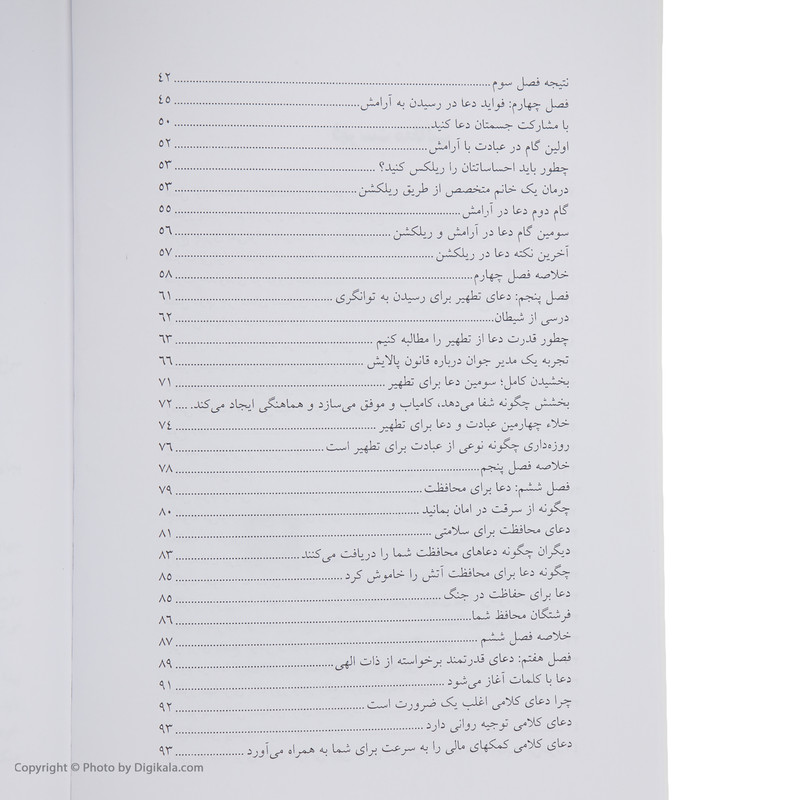 نتیجه فصل سوم ........ ٤٢
فصل چهارم: فواید دعا در رسیدن به آرامش ........ ٤٥
با مشارکت جسمتان دعا کنید ........ ٥٠
اولین گام در عبادت با آرامش ........ ٥٢
چطور باید احساساتتان را ریلکس کنید؟ ........ ٥٣
درمان یک خانم متخصص از طریق ریلکشن ........ ٥٣
گام دوم دعا در آرامش ........ ٥٥
سومین گام دعا در آرامش و ریلکشن ........ ٥٦
آخرین نکته دعا در ریلکشن ........ ٥٧
خلاصه فصل چهارم ........ ٥٨
فصل پنجم: دعای تطهیر برای رسیدن به توانگری ........ ٦١
درسی از شیطان ........ ٦٢
چطور قدرت دعا از تطهیر را مطالبه کنیم ........ ٦٣
تجربه یک مدیر جوان درباره قانون پالایش ........ ٦٦
بخشیدن کامل؛ سومین دعا برای تطهیر ........ ٧١
بخشش چگونه شفا می‌دهد، کامیاب و موفق می‌سازد و هماهنگی ایجاد می‌کند. .... ٧٢
خلاء چهارمین عبادت و دعا برای تطهیر ........ ٧٤
روزه‌داری چگونه نوعی از عبادت برای تطهیر است ........ ٧٦
خلاصه فصل پنجم ........ ٧٨
فصل ششم: دعا برای محافظت ........ ٧٩
چگونه از سرقت در امان بمانید ........ ٨٠
دعای محافظت برای سلامتی ........ ٨١
دیگران چگونه دعاهای محافظت شما را دریافت می‌کنند ........ ٨٣
چگونه دعا برای محافظت آتش را خاموش کرد ........ ٨٥
دعا برای حفاظت در جنگ ........ ٨٥
فرشتگان محافظ شما ........ ٨٦
خلاصه فصل ششم ........ ٨٧
فصل هفتم: دعای قدرتمند برخواسته از ذات الهی ........ ٨٩
دعا با کلمات آغاز می‌شود ........ ٩١
چرا دعای کلامی اغلب یک ضرورت است ........ ٩٢
دعای کلامی توجیه روانی دارد ........ ٩٣
دعای کلامی کمکهای مالی را به سرعت برای شما به همراه می‌آورد ........ ٩٣
Copyright © Photo by Digikala.com